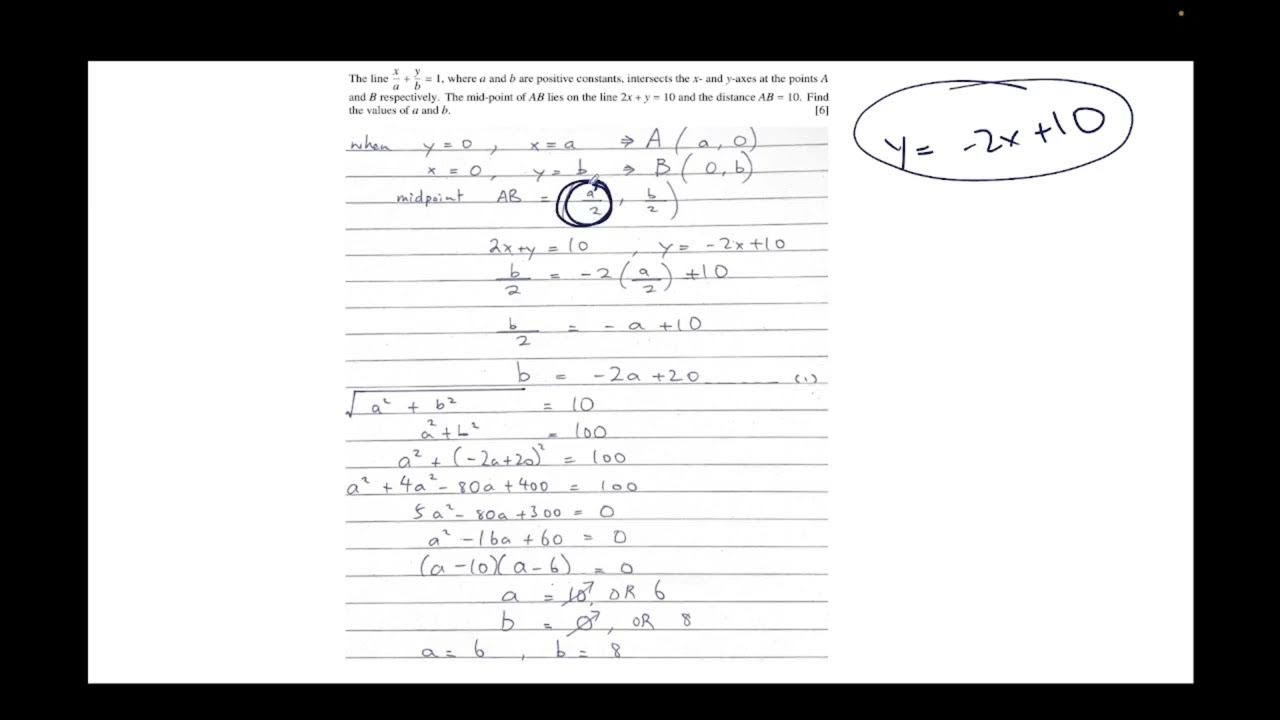 The line x/a + y/b = 1, where a and b are positive constants, intersects the x- and y-axes at the points A
and B respectively. The mid-point of AB lies on the line 2x + y = 10 and the distance AB = 10. Find
the values of a and b. [6]
y = -2x + 10
when y = 0 , x = a ⇒ A ( a , 0 )
x = 0 , y = b ⇒ B ( 0 , b )
midpoint AB = ( a/2 , b/2 )
2x+y = 10 , y = -2x+10
b/2 = -2 ( a/2 ) +10
b/2 = - a +10
b = -2a +20 (1)
√(a² + b²) = 10
a² + b² = 100
a² + (-2a+20)² = 100
a² + 4a² - 80a + 400 = 100
5a² - 80a + 300 = 0
a² - 16a + 60 = 0
(a - 10)(a - 6) = 0
a = 10, OR 6
b = 0, OR 8
a = 6 , b = 8